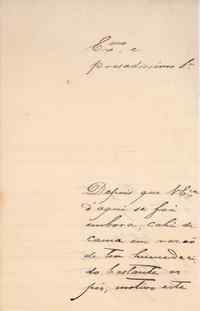 Exmo. e
presadissimo Sr.
Depois que V.Exa.
d'aqui se foi
embora, cahi de
cama em razão
de ter humedeci-
do bastante os
pés, motivo este